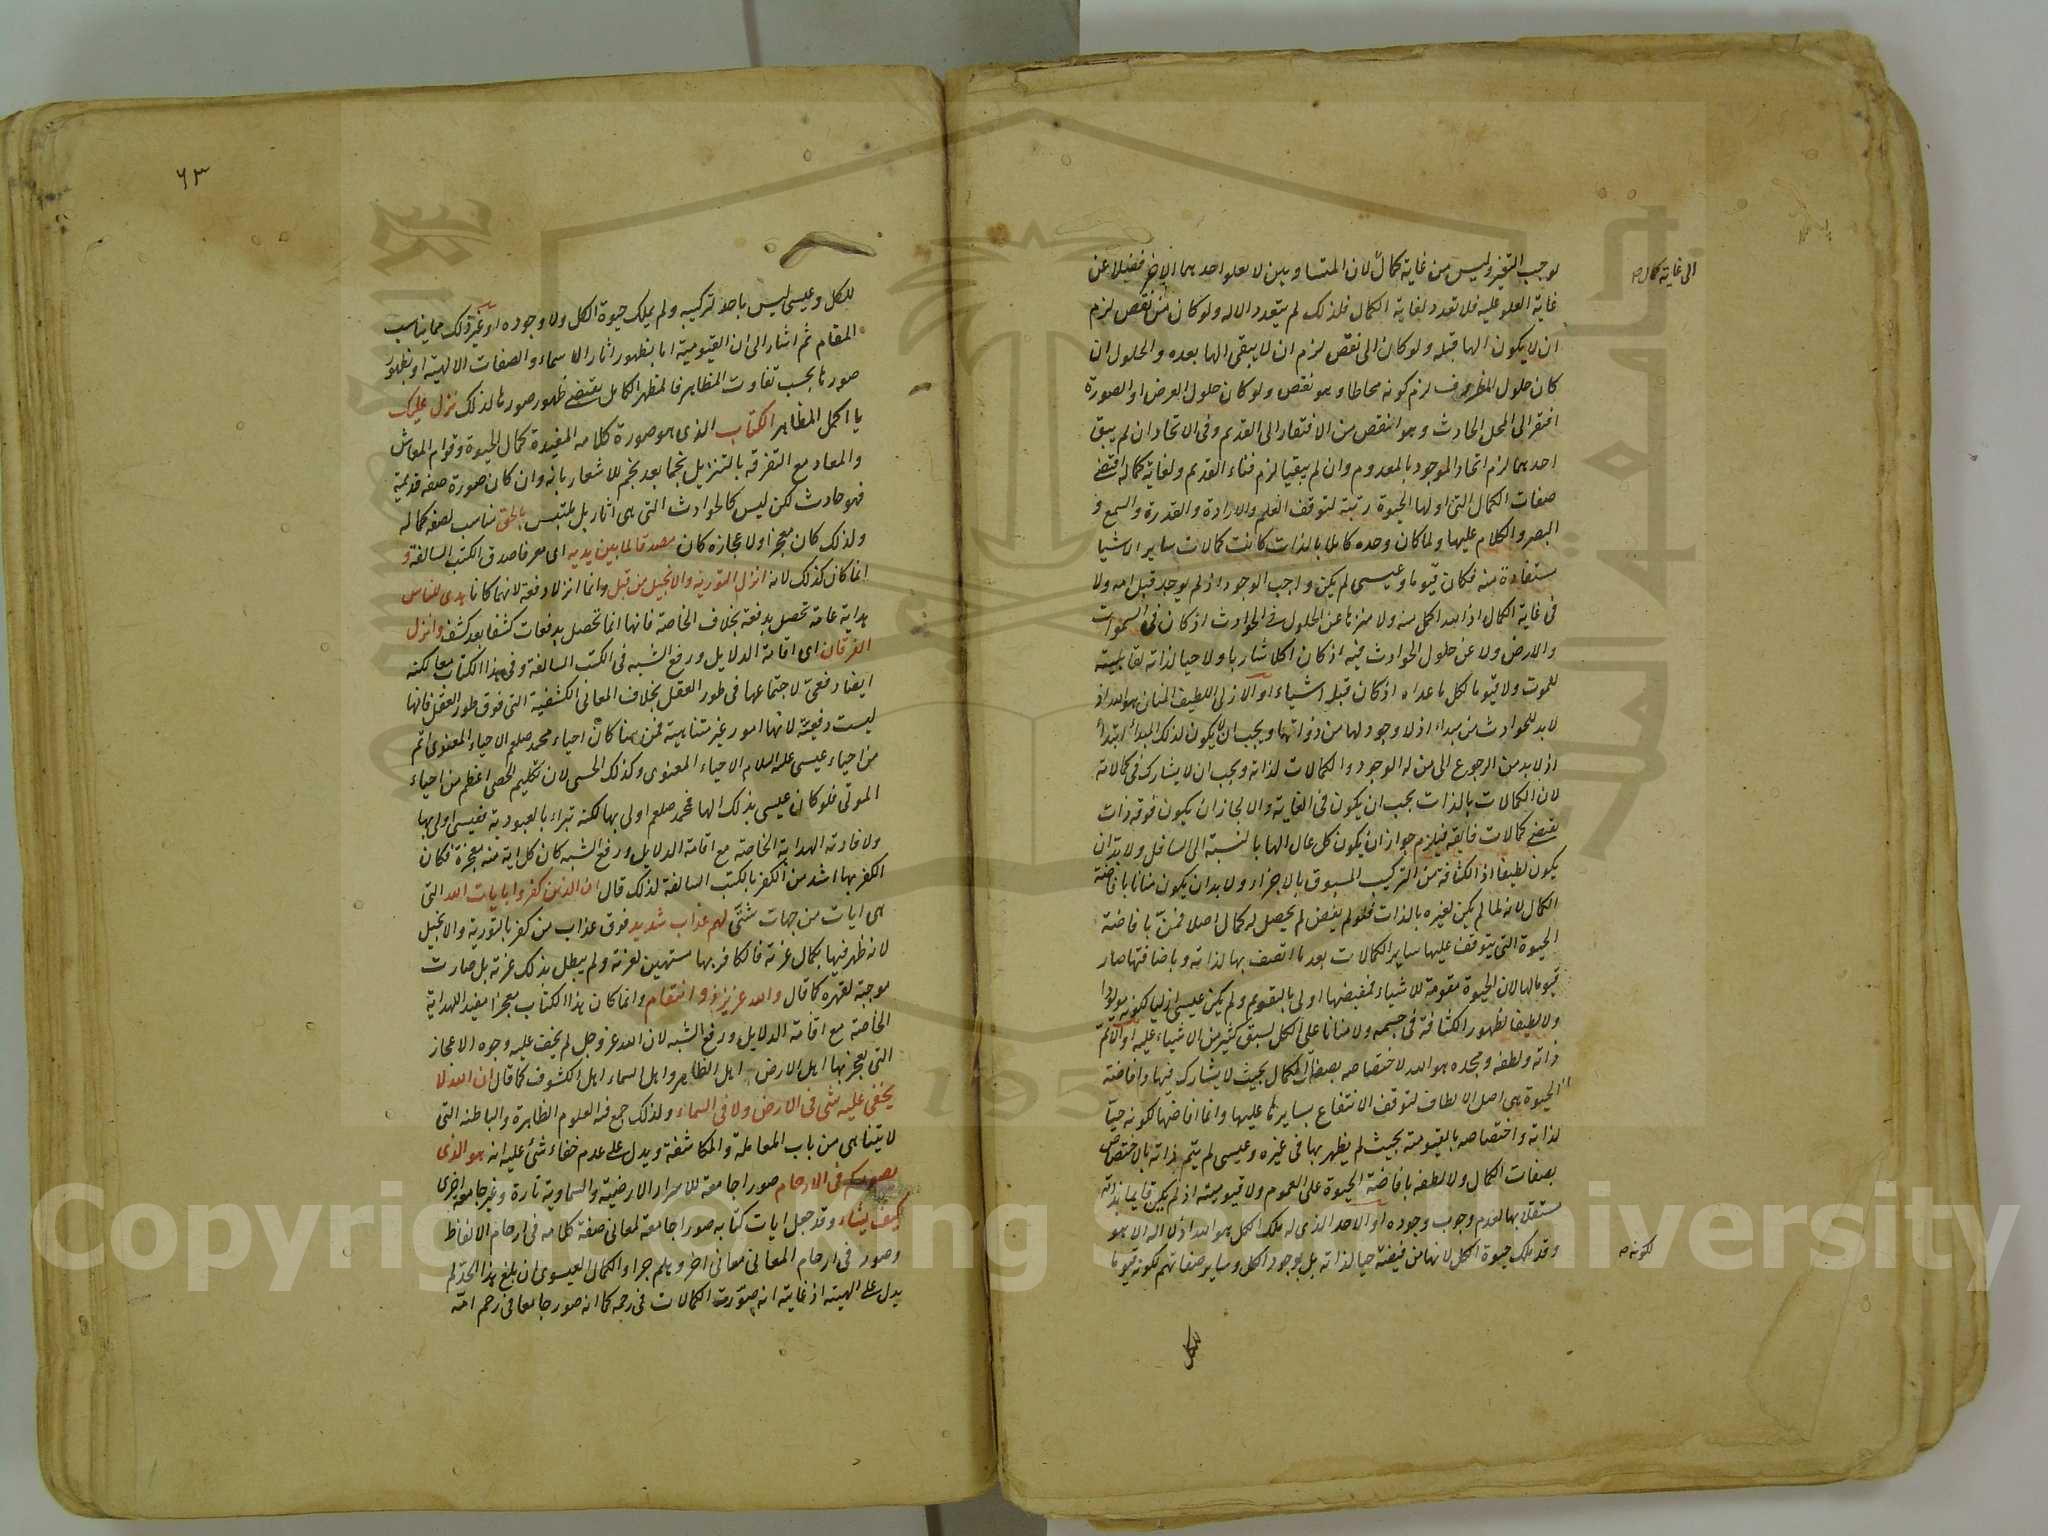 الى غاية كمال صح
يوجب التغير وليس من غاية كمال لان المتساويين لا يعلو احدهما الاخر فضلا عن
غاية العلو عليه فلا تعدد لغاية الكمال فلذلك لم يتعدد الاله ولو كان من نقص لزم
ان لا يكون الها قبله ولو كان الى نقص لزم ان لا يبقى الها بعده والحلول ان
كان حلول المظروف لزم كونه محاطا وهو نقص ولو كان حلول العرض او الصورة
افتقر الى المحل الحادث وهو انقص من الافتقار الى القديم وفى الاتحاد ان لم يبق
احدهما لزم اتحاد الموجود بالمعدوم وان لم يبقيا لزم فناء القديم ولغاية كماله اقتضى
صفات الكمال التى اولها الحيوة رتبة لتوقف العلم والارادة والقدرة والسمع و
البصر والكلام عليها ولما كان وحده كاملا بالذات كانت كمالات ساير الاشيا
مستفادة منه فكان قيوما وعيسى لم يكن واجب الوجود اذ لم يوجد قبل امه ولا
فى غاية الكمال اذ الله اكمل منه ولا منزها عن الحلول فى الحوادث اذ كان فى السموات
والارض ولا عن حلول الحوادث فيه اذ كان اكلا شاربا ولا حيا لذاته لقابليته
للموت ولا قيوما لكل ما عداه اذ كان قبله اشياء او الازلى اللطيف المنان هو الله اذ
لا بد للحوادث من مبداء اذ لا وجود لها من ذواتها ويجب ان لا يكون لذلك المبدأ ابتدأ
اذ لا بد من الرجوع الى من له الوجود والكمالات لذاته ويجب ان لا يشارك فى كمالاته
لان الكمالات بالذات يجب ان يكون فى الغاية والا لجاز ان يكون فوقه ذات
يقتضى كمالات فايقة فيلزم جواز ان يكون كل عال الها بالنسبة الى السافل ولا بد ان
يكون لطيفا اذ الكثافة من التركيب المسبوق بالاجزاء ولا بد ان يكون منانا بافاضة
الكمال لانه لما لم يكن لغيره بالذات فلو لم يفض لم يحصل له كمال اصلا فمن بافاضة
الحيوة التى يتوقف عليها ساير الكمالات بعد ما اتصف بها لذاته وبافاضتها صار
قيوما لها لان الحيوة مقومة للاشياء فمفيضها اولى بالتقويم ولم يكن عيسى ازليا لكونه مولودا
ولا لطيفا لظهور الكثافة فى جسمه ولا منانا على الكل لسبق كثير من الاشياء عليه او الاتم
ذاته ولطفه ومجده هو الله لاختصاصه بصفات الكمال بحيث لا يشارك فيها وافاضة
الحيوة هى اصل الالطاف لتوقف الانتفاع بسايرها عليها وانما افاضها لكونه حيا
لذاته واختصاصه بالقيومية بحيث لم يظهر بها فى غيره وعيسى لم يتم ذاته بالاختصاص
بصفات الكمال ولا لطفه بافاضة الحيوة على العموم ولا قيوميته اذ لم يكن قايما بذاته
مستقلا بها لعدم وجوب وجوده او الاحد الذى له ملك الكل هو الله اذ لا اله الا هو
وقد ملك حيوة الكل لانها من فيضه حيا لذاته بل بوجود الكل وساير صفاتهم لكونه قيوما
لكونه صح
للكل
٦٣
للكل وعيسى ليس باحد لتركيبه ولم يملك حيوة الكل ولا وجوده او غير ذلك مما يناسب
المقام ثم اشار الى ان القيومية اما بظهور اثار الاسماء والصفات الالهية او بظهور
صورها بحسب تفاوت المظاهر فالمظهر الكامل يقتضى ظهور صورها لذلك نزل عليك
يا اكمل المظاهر الكتاب الذى هو صورة كلامه المفيدة كمال الحيوة وقوام المعاش
والمعاد مع التفرقه بالتنزيل نجما بعد نجم للاشعار بانه وان كان صورة صفة قديمية
فهو حادث لكن ليس كالحوادث التى هى اثار بل ملتبس بالحق تناسب لصفه كماله
ولذلك كان معجزا ولا عجازه كان مصدقا لما بين يديه اى معرفا صدق الكتب السالفة و
انما كان كذلك لانه انزل التورية والانجيل من قبل وانما انزلا دفعة لانهما كانا هدى للناس
هداية عامة تحصل بدفعة بخلاف الخاصة فانها انما تحصل بدفعات كشفا بعد كشف وانزل
الفرقان اى اقامة الدلايل ورفع الشبه فى الكتب السالفة وفى هذا الكتاب معا لكنه
ايضا دفعى لاجتماعها فى طور العقل بخلاف المعانى الكشفية التى فوق طور العقل فانها
ليست دفعية لانها امور غير متناهية فمن هنا كان احياء محمد صلعم الاحياء المعنوى اتم
من احياء عيسى عليه السلام الاحياء المعنوى وكذلك الحسى لان تكليم الحصى اعظم من احياء
الموتى فلو كان عيسى بذلك الها فمحمد صلعم اولى بها لكنه تبراء بالعبودية فعيسى اولى بها
ولافادته الهداية الخاصة مع اقامة الدلايل ورفع الشبه كان كل اية منه معجزة فكان
الكفر بها اشد من الكفر بالكتب السالفة لذلك قال ان الذين كفروا بايات الله التى
هى ايات من جهات شتى لهم عذاب شديد فوق عذاب من كفر بالتورية والانجيل
لانه ظهر فيها بكمال عزته فالكافر بها مستهين لعزته ولم يبطل بذلك عزته بل صارت
موجبة لقهره كما قال والله عزيز ذو انتقام وانما كان هذا الكتاب معجزا مفيد الهداية
الخاصة مع اقامة الدلايل ورفع الشبه لان الله عز وجل لم يخف عليه وجوه الاعجاز
التى يعجز بها اهل الارض اهل الظاهر واهل السماء اهل الكشوف كما قال ان الله لا
يخفى عليه شى فى الارض ولا فى السماء ولذلك جمع فيه العلوم الظاهرة والباطنه التى
لا يتناهى من باب المعاملة والمكاشفة ويدل على عدم خفاء شئ عليه انه هو الذى
يصوركم فى الارحام صورا جامعة للاسرار الارضية والسماوية تارة وغير جامعة اخرى
كيف يشاء وقد جعل ايات كتابه صورا جامعة لمعانى صفة كلامه فى ارحام الالفاظ
وصور فى ارحام المعانى معانى اخر وهلم جرا والكمال العيسوى ان بلغ هذا الحد لم
يدل على الهيته اذ غايته انه صورت الكمالات فى رحمه كما انه صور جامعا فى رحم امه
Copyright © King Saud University
1957